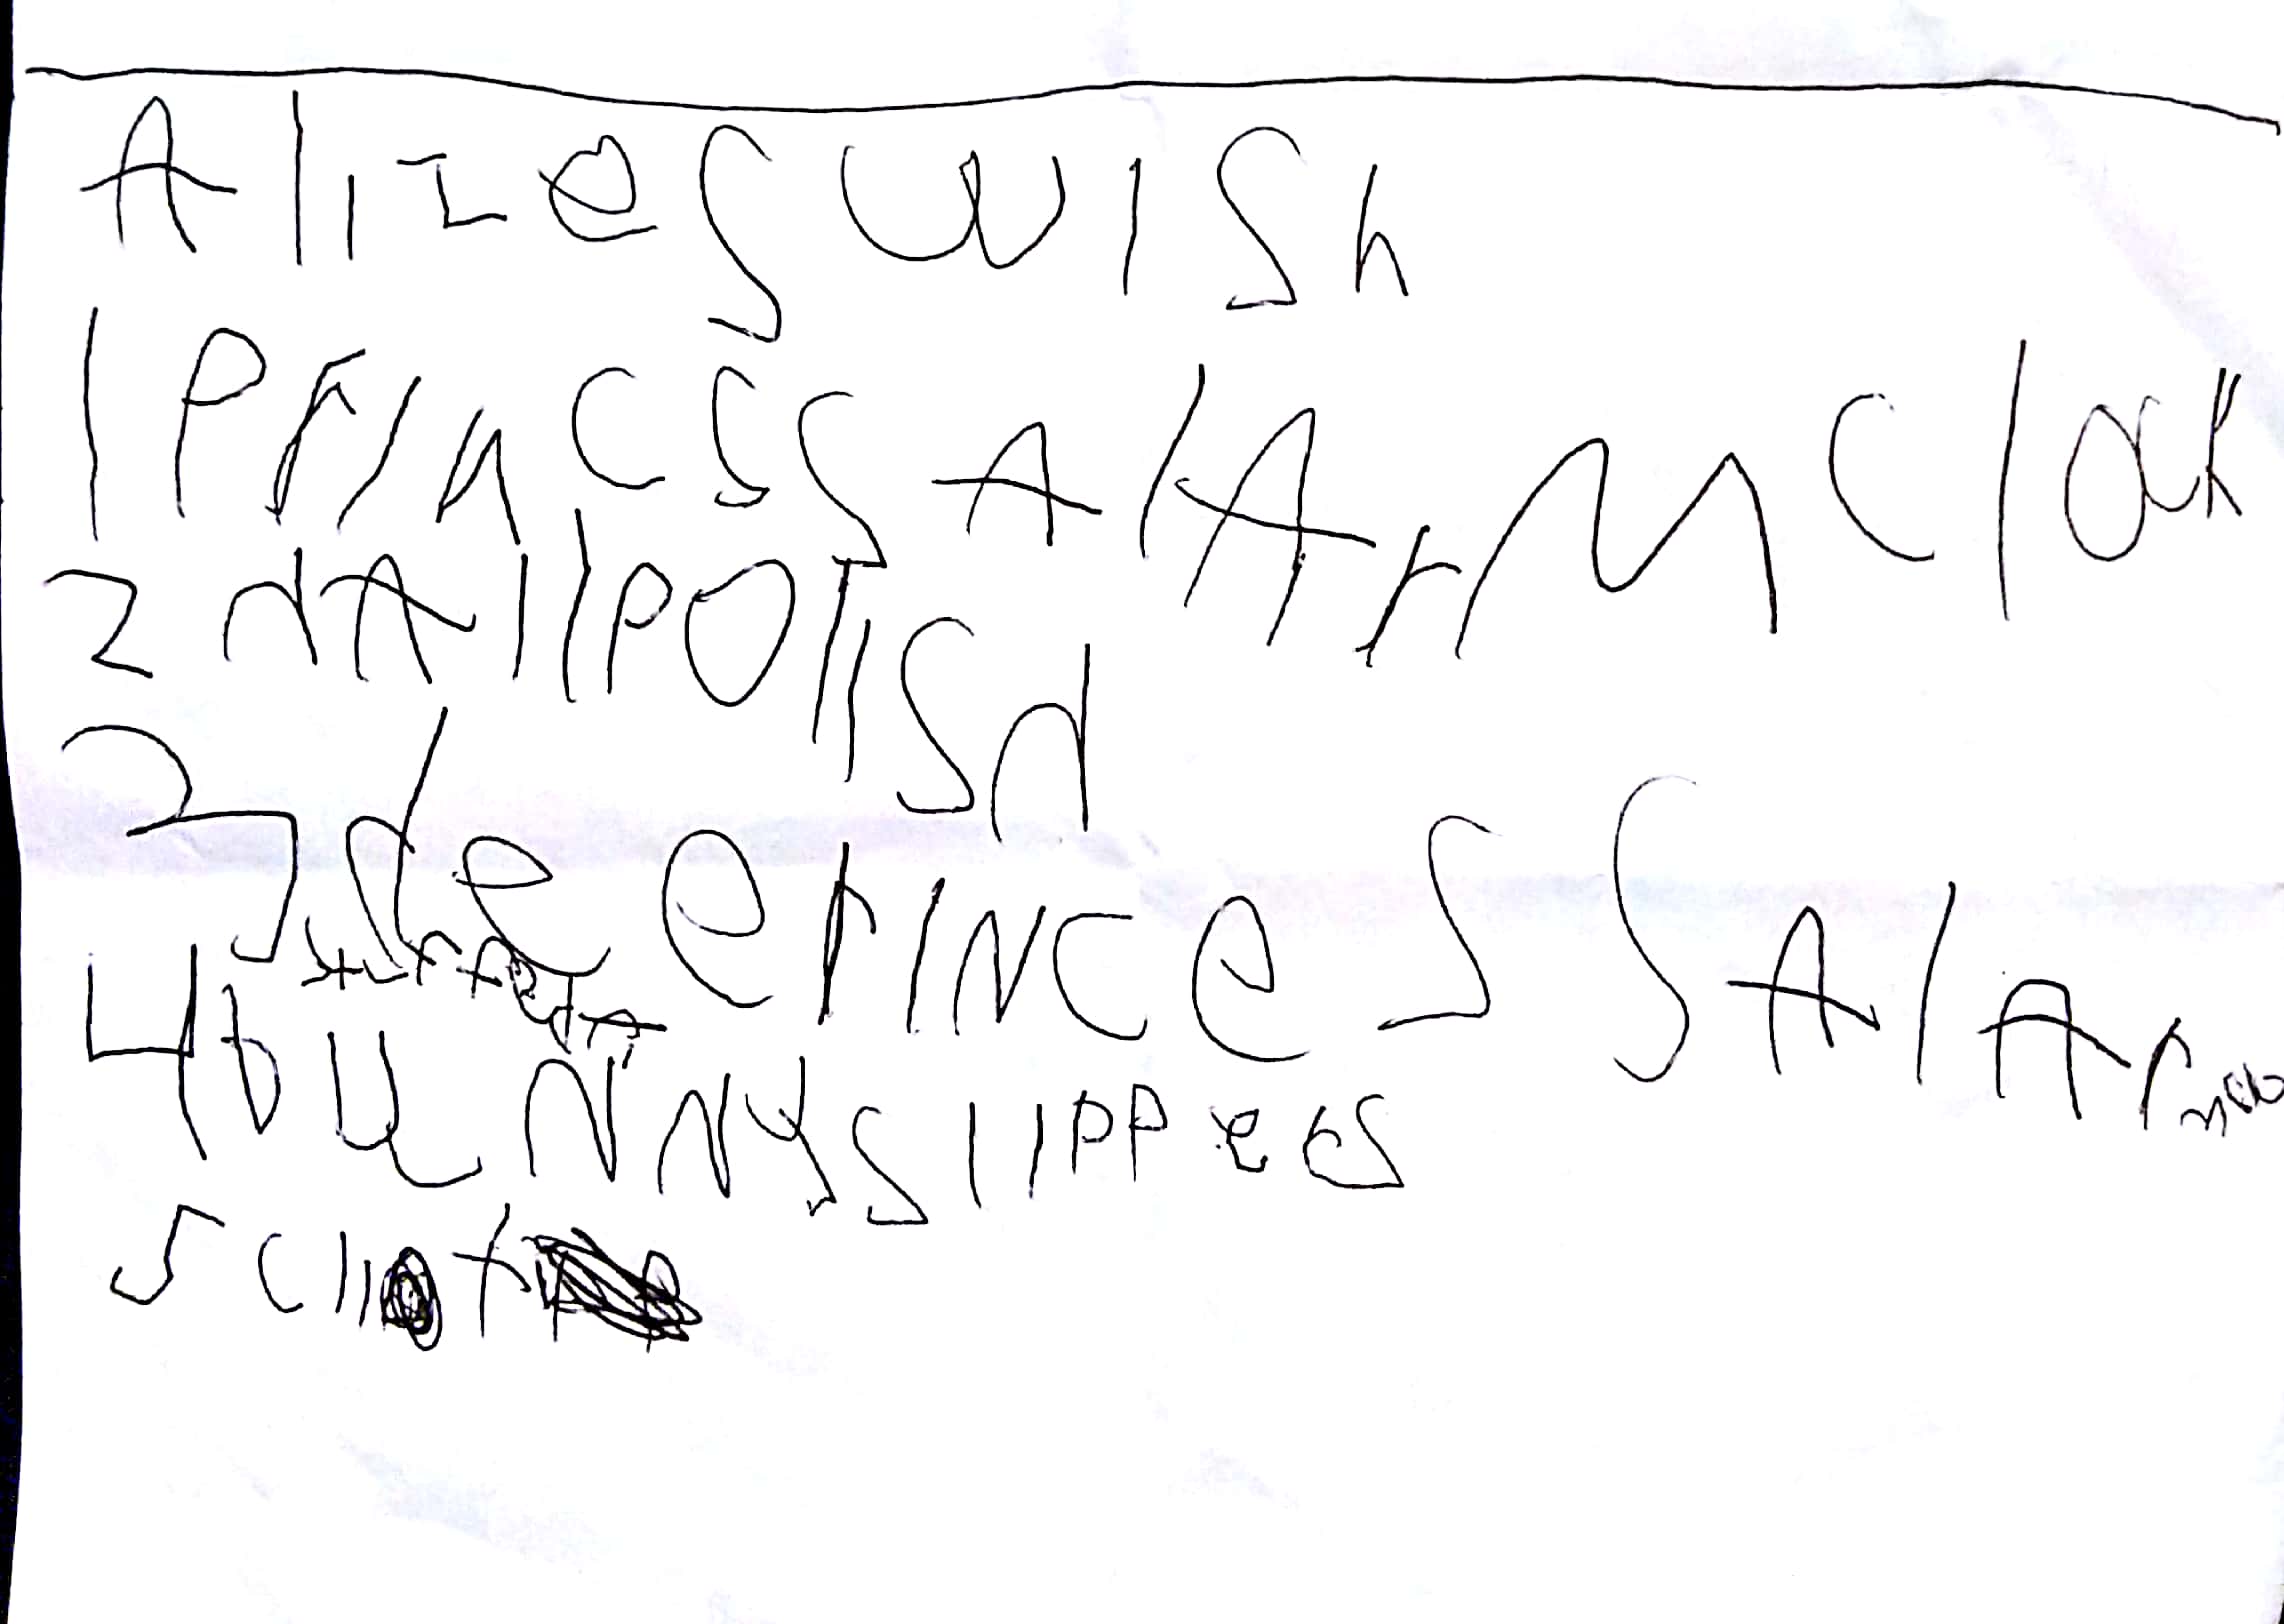 Alizes wish
1 Princss AlArm clock
2 nAilpolish
3 deerinces SAlArm
4 bunny slippers
5 cli t